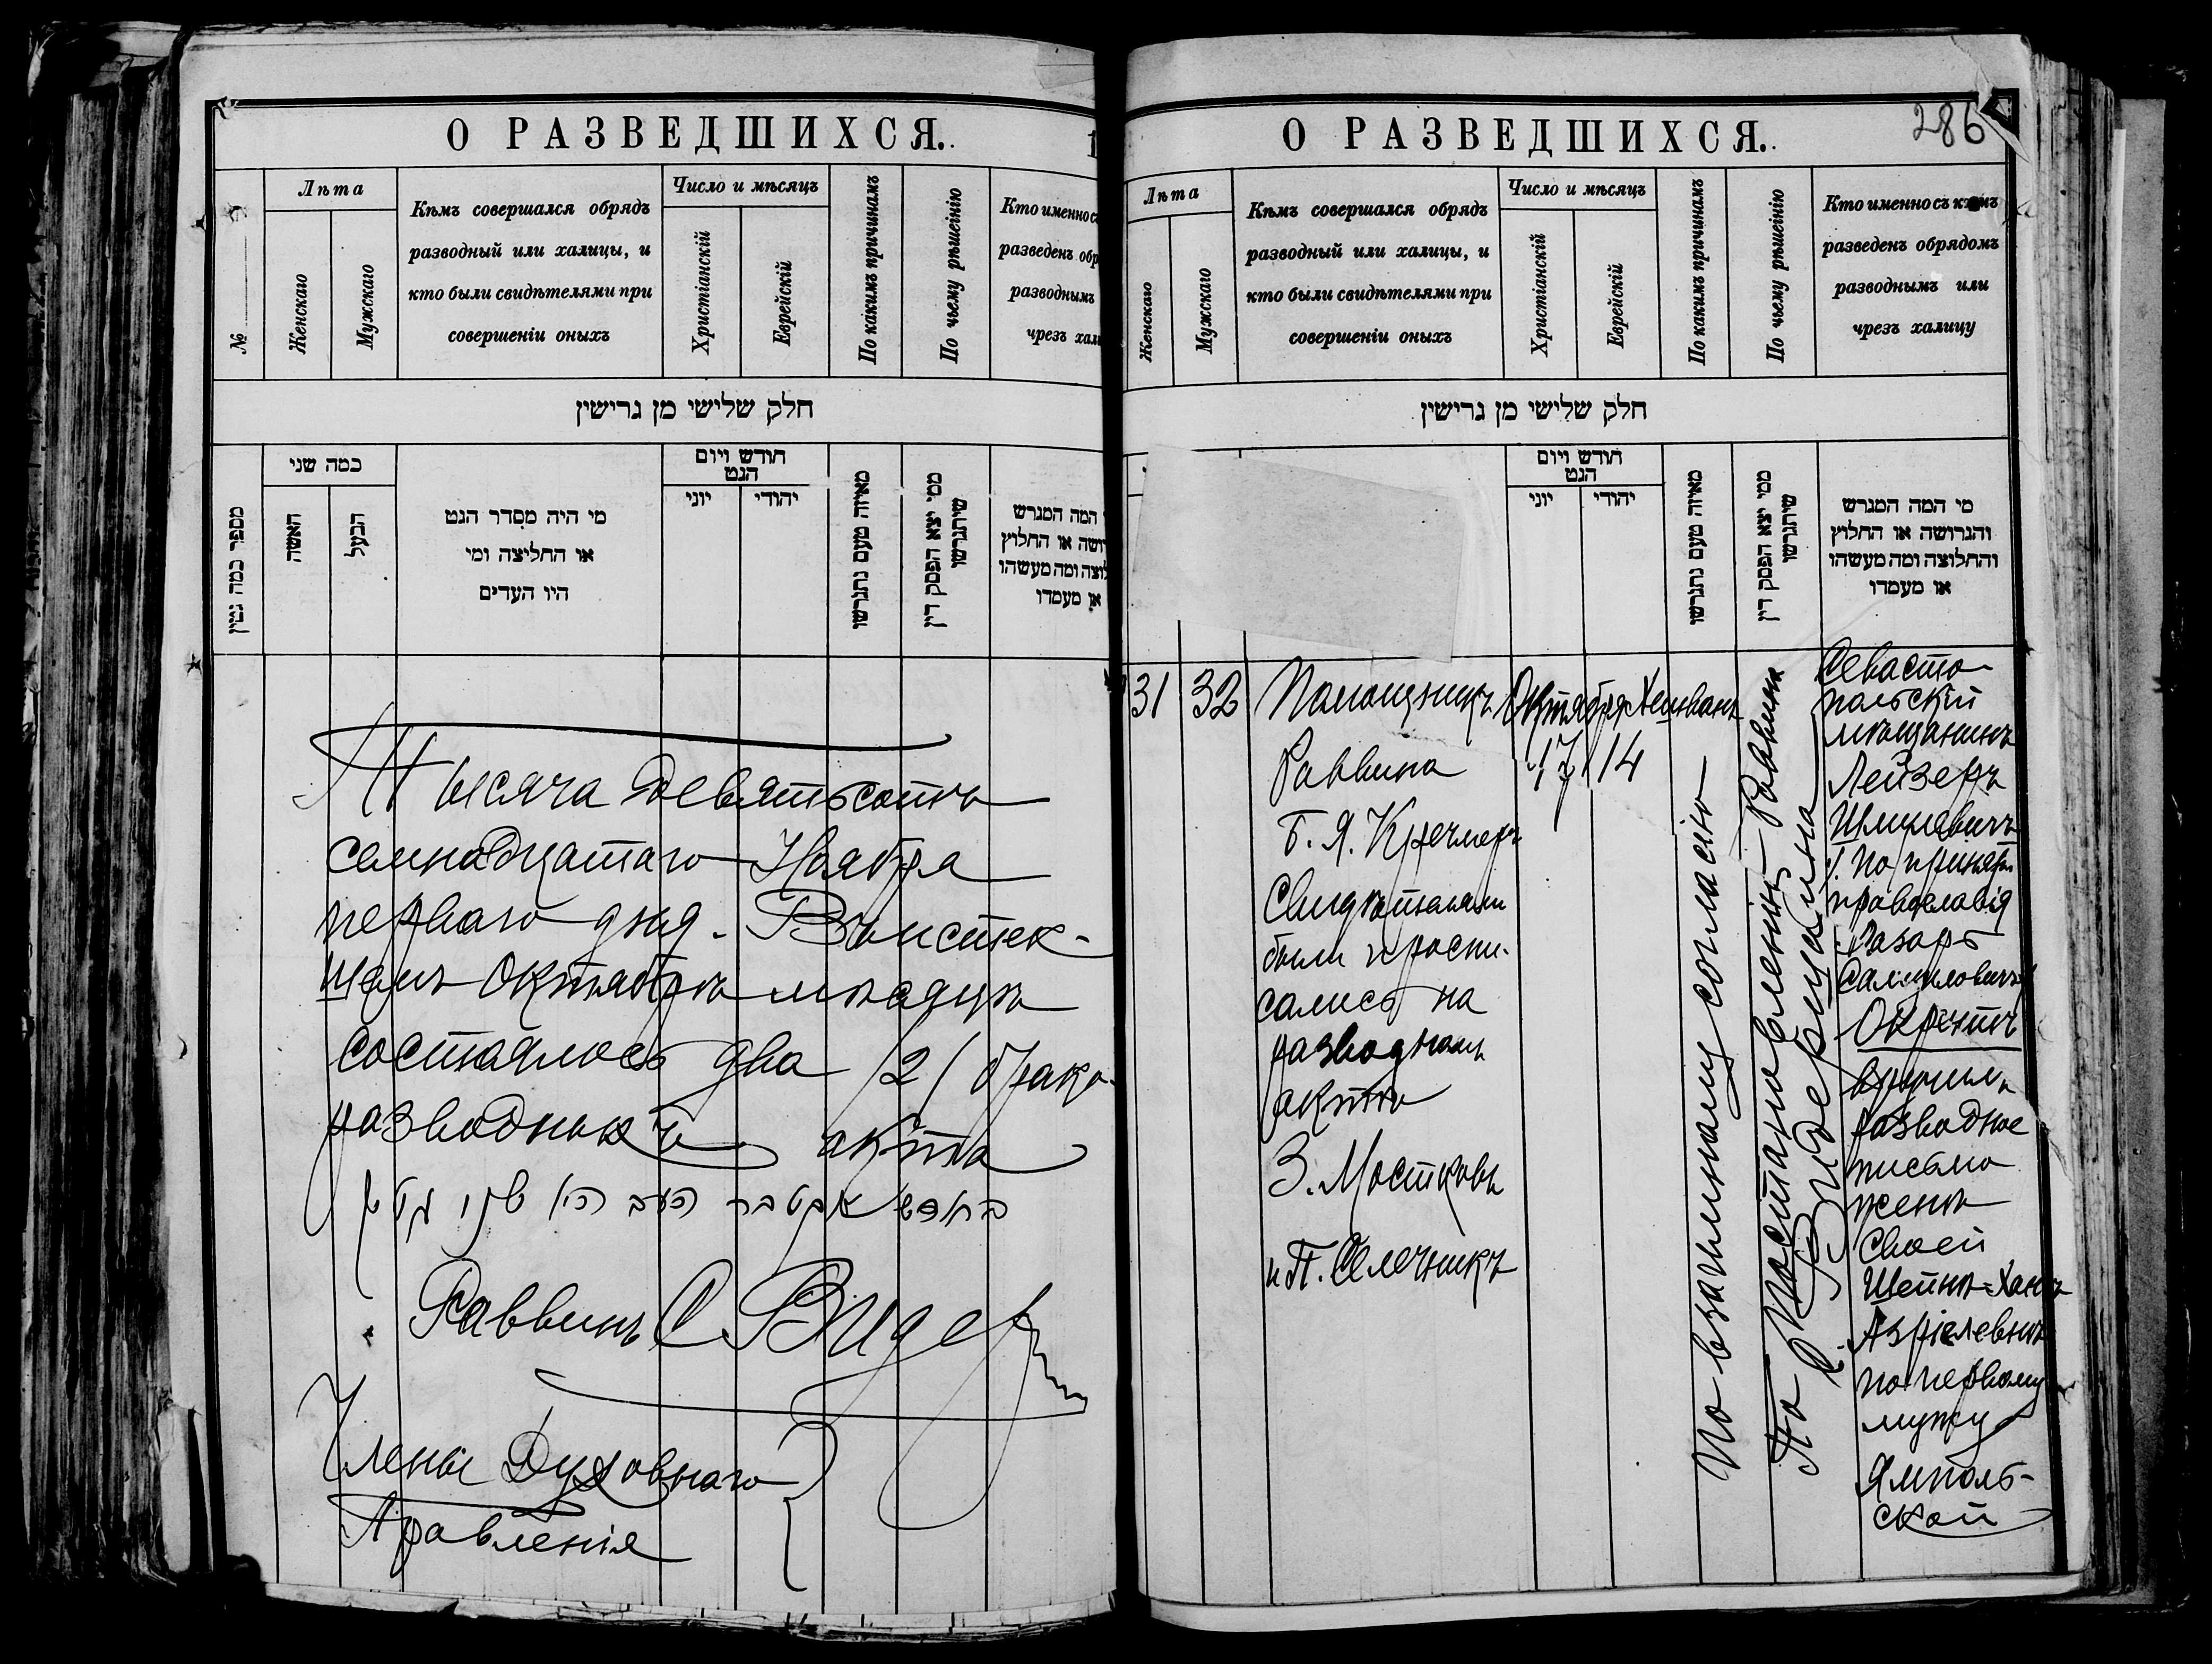 О РАЗВЕДШИХСЯ.
№
Лѣта
Женскаго
Мужскаго
Кѣмъ совершался обрядъ
разводный или халицы, и
кто были свидѣтелями при
совершеніи оныхъ
Число и мѣсяцъ
Христіанскій
Еврейскій
По какимъ причинамъ
По чьему рѣшенію
Кто именно съ
разведенъ обр
разводнымъ
чрезъ хал
חלק שלישי מן גרישין
מספר כמה גטין
כמה שני
האשה
הבעל
מי היה מסדר הגט
או החליצה ומי
היו העדים
חודש ויום
הגט
יוני
יהודי
מאיזה טעם נתגרשו
ממי יצא הפסק דין
שיתגרשו
המה המגרש
רושה או החלוץ
לוצה ומה מעשהו
או מעמדו
Тысяча девятьсотъ
семнадцатаго Ноября
перваго дня. Въ истек-
шемъ Октябрѣ мѣсяцѣ
состоялось два /2/ брако-
разводныхъ акта
Раввинъ С Видер
Члены Духовнаго
Правленія
О РАЗВЕДШИХСЯ.
286
Лѣта
Женскаго
Мужскаго
Кѣмъ совершался обрядъ
разводный или халицы, и
кто были свидѣтелями при
совершеніи оныхъ
Число и мѣсяцъ
Христіанскій
Еврейскій
По какимъ причинамъ
По чьему рѣшенію
Кто именно съ кѣмъ
разведенъ обрядомъ
разводнымъ или
чрезъ халицу
חלק שלישי מן גרישין
חודש ויום
הגט
יוני
יהודי
מאיזה טעם נתגרשו
ממי יצא הפסק דין
שיתגרשו
מי המה המגרש
והגרושה או החלוץ
והחלוצה ומה מעשהו
או מעמדו
31
32
Помощникъ
Раввина
Б. Я. Кречмеръ
Свидѣтелями
были и распи-
сались на
разводномъ
актѣ
З. Мостковъ
и П. Селечникъ
Октября
17
Хешванъ
14
По взаимному согласію
По постановленію Раввина
С. Видерщайна
Севасто-
польскій
мѣщанинъ
Лейзеръ
Шмулевичъ
/. по принятіи
православія
Лазарь
Самуиловичъ/
Окрентъ
вручилъ
разводное
письмо
женѣ
своей
Шейнѣ-Ханѣ
Азріелевнѣ
по первому
мужу
Ямполь-
ской